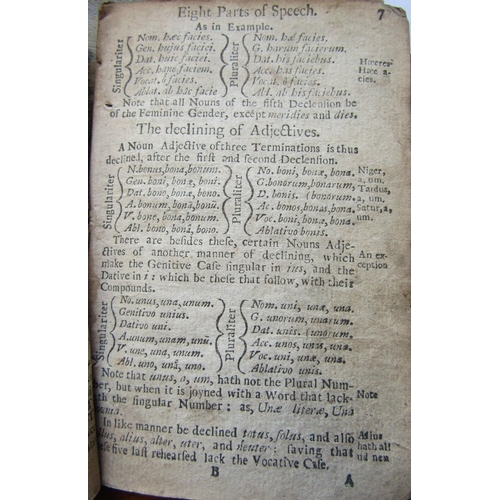 Eight Parts of Speech. 7
As in Example.
Singulariter
Nom. hæc facies.
Gen. hujus faciei.
Dat. huic faciei.
Acc. hanc faciem.
Vocat. ô facies.
Ablat. ab hac facie
Pluraliter
Nom. hæ facies.
G. harum facierum.
Dat. his faciebus.
Acc. has facies.
Vocat. ô facies.
Abl. ab his faciebus.
Note that all Nouns of the fifth Declension be
of the Feminine Gender, except meridies and dies.
The declining of Adjectives.
A Noun Adjective of three Terminations is thus
declined, after the first and second Declension.
Singulariter
N. bonus, bona, bonum.
Gen. boni, bonæ, boni.
Dat. bono, bonæ, bono.
A. bonum, bonã, bonũ.
V. bone, bona, bonum.
Abl. bono, bonâ, bono.
Pluraliter
No. boni, bonæ, bona.
G. bonorum, bonarum,
D. bonis. (bonorum.
Ac. bonos, bonas, bona.
Voc. boni, bonæ, bona.
Ablativo bonis.
Niger,
a, um.
Tardus,
a, um.
Satur, a,
um.
There are besides these, certain Nouns Adje-
ctives of another manner of declining, which
make the Genitive Case singular in ius, and the
Dative in i: which be these that follow, with their
Compounds.
An ex-
ception
Singulariter
No. unus, una, unum.
Genitivo unius.
Dativo uni.
A. unum, unam, unũ.
V. une, una, unum.
Abl. uno, unâ, uno.
Pluraliter
Nom. uni, unæ, una.
G. unorum, unarum,
Dat. unis. (unorum,
Acc. unos, unas, una.
Voc. uni, unæ, una.
Ablativo unis.
Note that unus, a, um, hath not the Plural Num-
ber, but when it is joyned with a Word that lack-
eth the singular Number: as, Unæ literæ, Una
Note
In like manner be declined totus, solus, and also
alius, alter, uter, and neuter: saving that
five last rehearsed lack the Vocative Case.
Alius
hath ali-
ud neu
B A